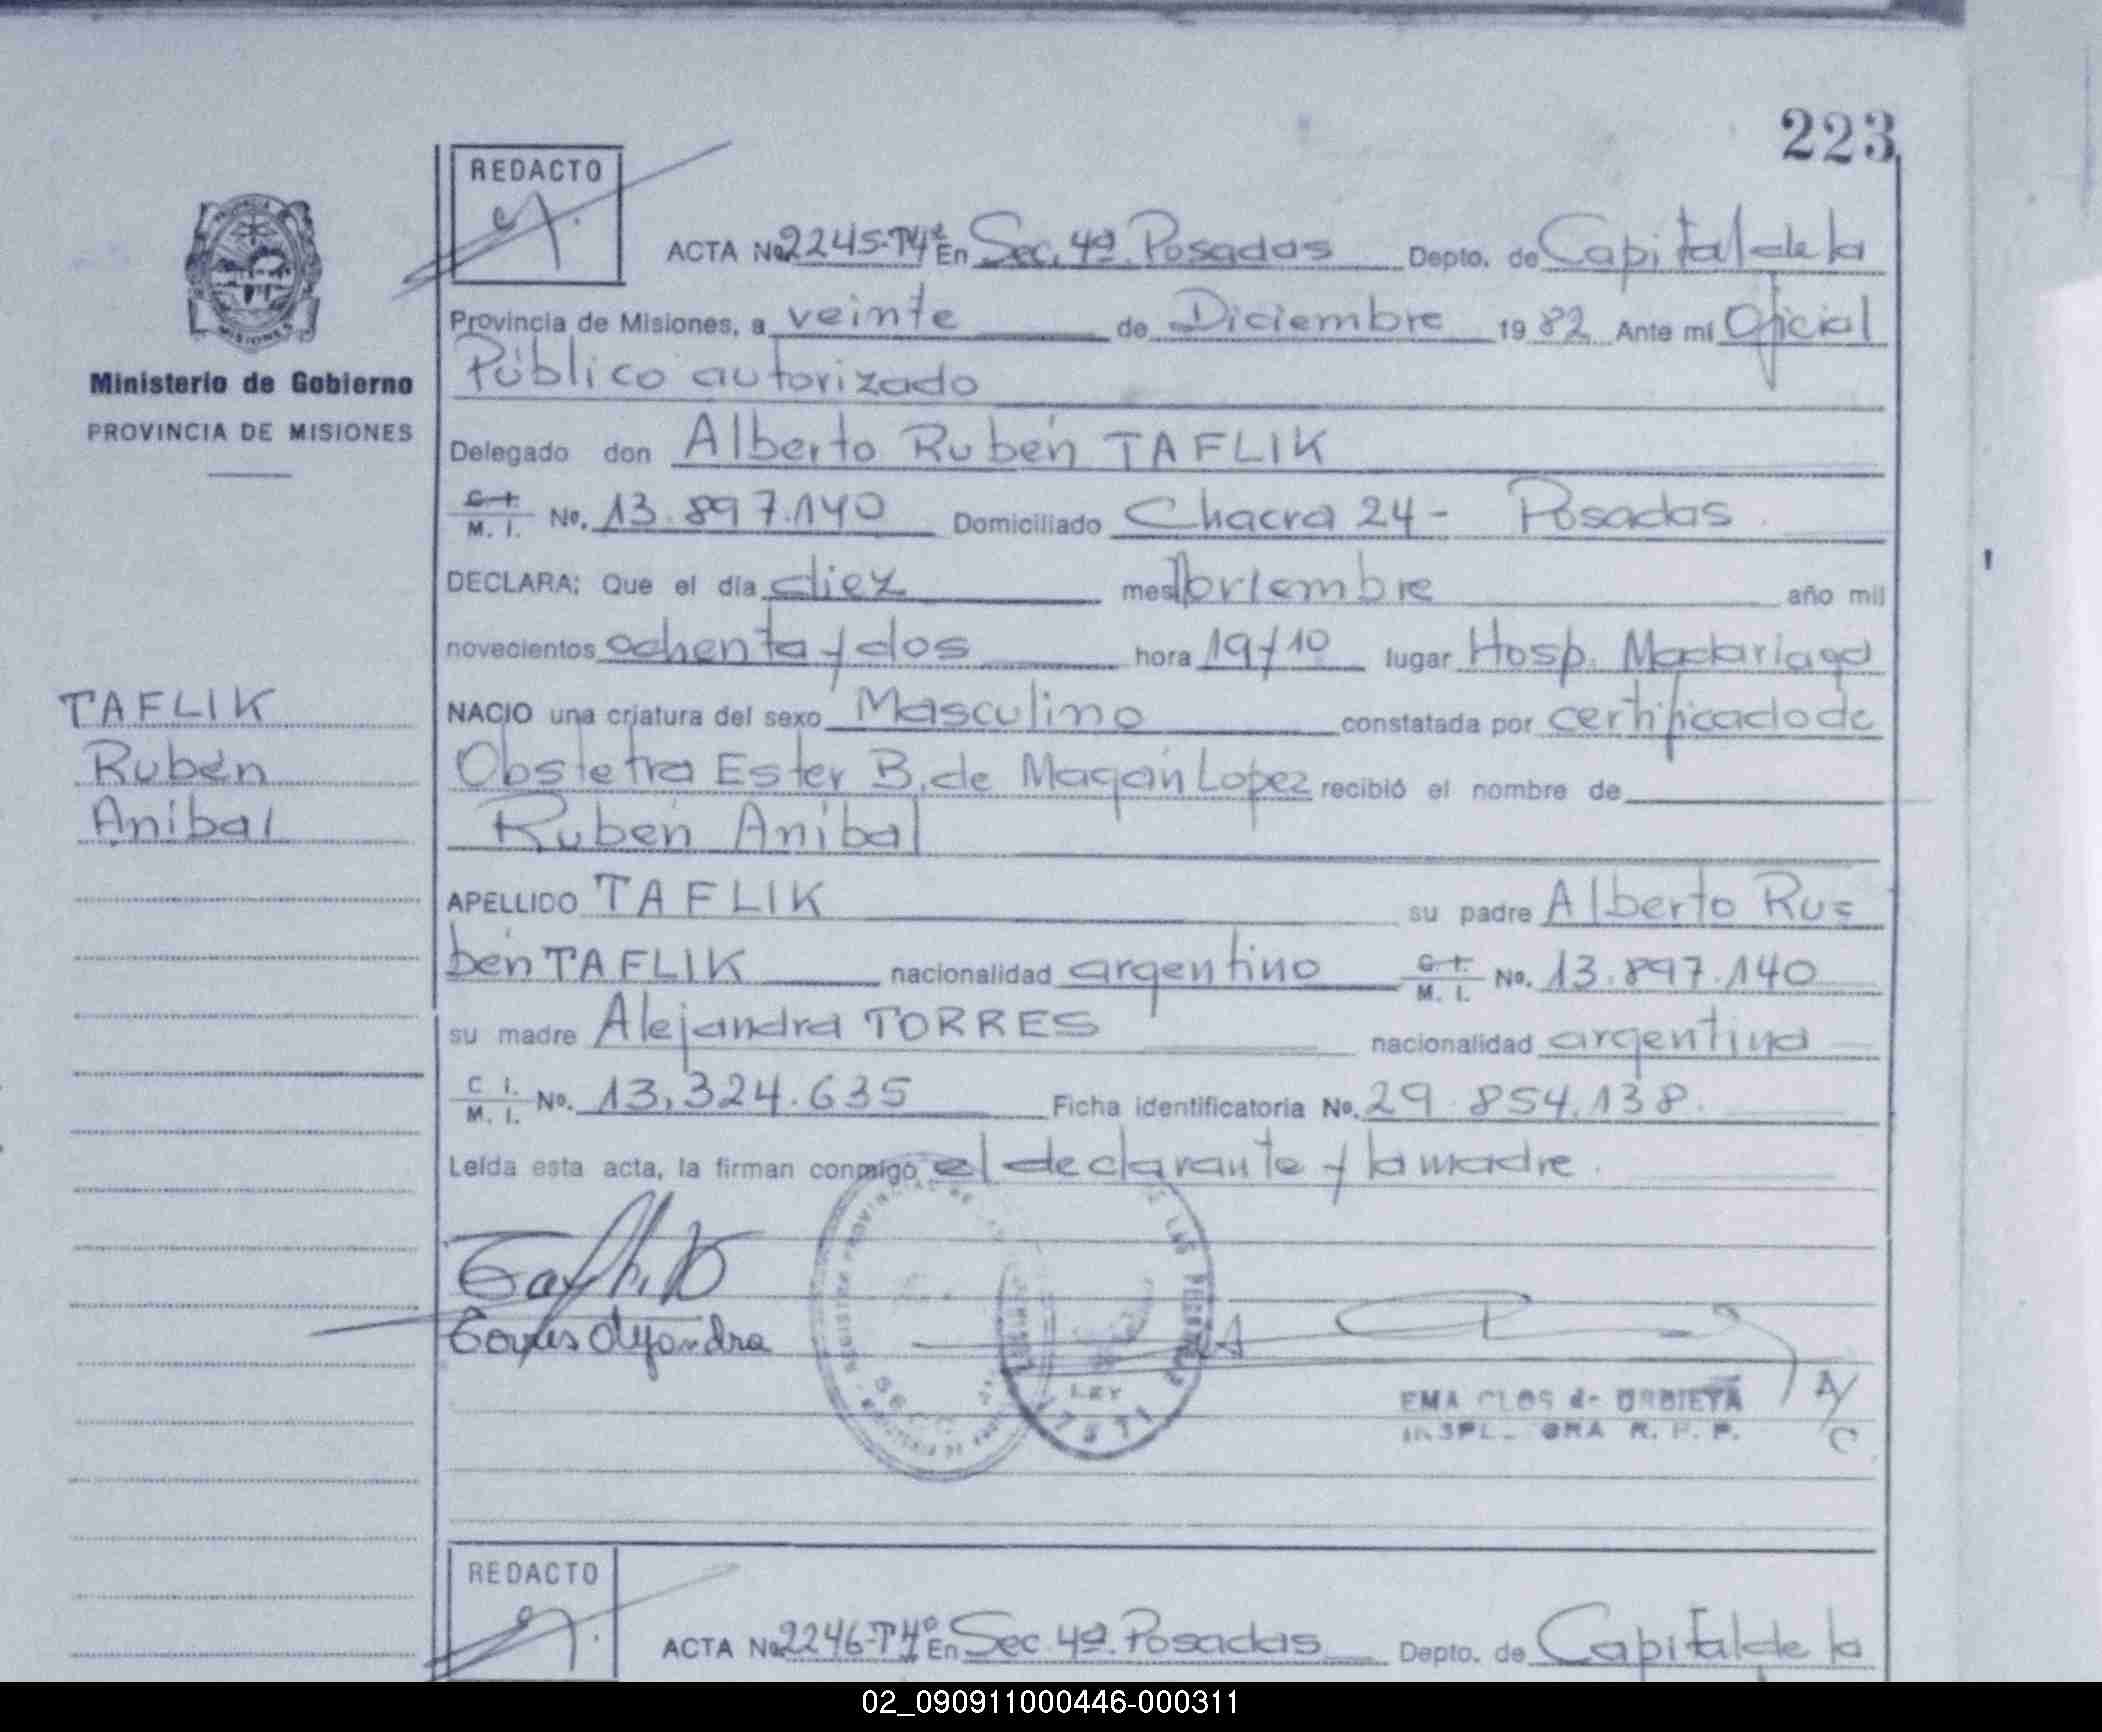 223
REDACTO
ACTA No 2245-T4º En Sec. 4ª. Posadas Depto. de Capital de la
PROVINCIA DE
MISIONES
Provincia de Misiones, a veinte de Diciembre 1982 Ante mi Oficial
Público autorizado
Ministerio de Gobierno
PROVINCIA DE MISIONES
Delegado don Alberto Rubén TAFLIK
C. I. M. I. No. 13.897.140 Domiciliado Chacra 24 - Posadas
DECLARA: Que el día diez mes Noviembre año mil
novecientos ochenta y dos hora 19/10 lugar Hosp. Madariaga
TAFLIK
Rubén
Aníbal
NACIO una criatura del sexo Masculino constatada por certificado de
Obstetra Ester B. de Magán Lopez recibió el nombre de
Rubén Aníbal
APELLIDO TAFLIK su padre Alberto Ru=
bén TAFLIK nacionalidad argentino C. I. M. I. No. 13.897.140
su madre Alejandra TORRES nacionalidad argentina
C. I. M. I. No. 13,324.635 Ficha identificatoria No. 29.854.138.
Leída esta acta, la firman conmigo el declarante y la madre.
Taflik
Torres Alejandra
LEY
EMA CLOS de URBIETA
R. P. P.
A/C
REDACTO
ACTA No 2246-T4º En Sec. 4ª. Posadas Depto. de Capital de la
02_090911000446-000311